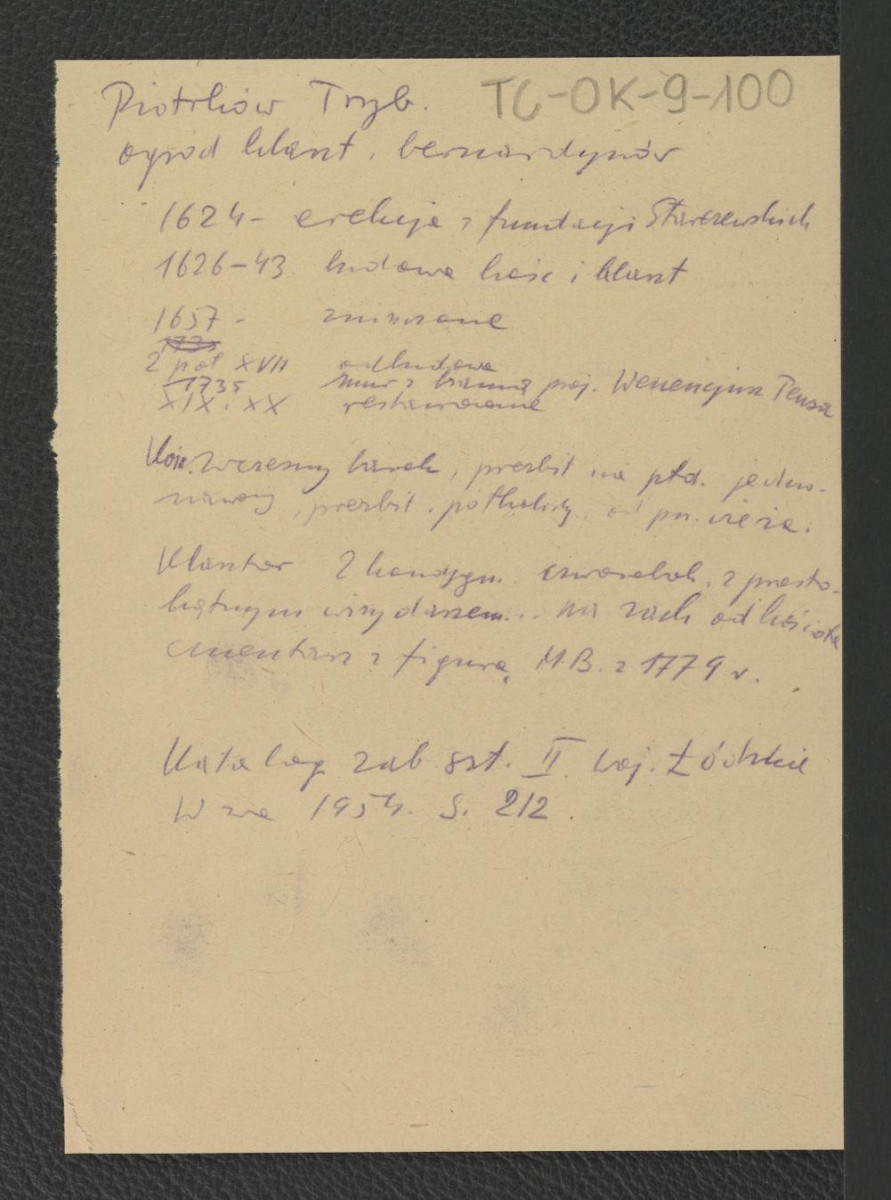 Piotrków Tryb. TC-OK-9-100
ogród klaszt. bernardynów
1624 - erekcja z fundacji Starczewskich
1626-43 budowa kośc i klaszt
1657 - zniszczone
1735
2 poł XVII odbudowa
1735 mur z bramą proj. Wenencjusz
XIX i XX restaurowane
Kośc. wczesny barok, prezbit na płd. jedno-
nawowy, prezbit. od pn. wieża.
Klasztor 2 kondygn. czworobok. z prosto-
kątnym wirydarzem... na zach od kościoła
cmentarz z figurą M.B. z 1779 r.
Katalog zab. szt. II. woj. Łódzkie
W-wa 1954. S. 212.